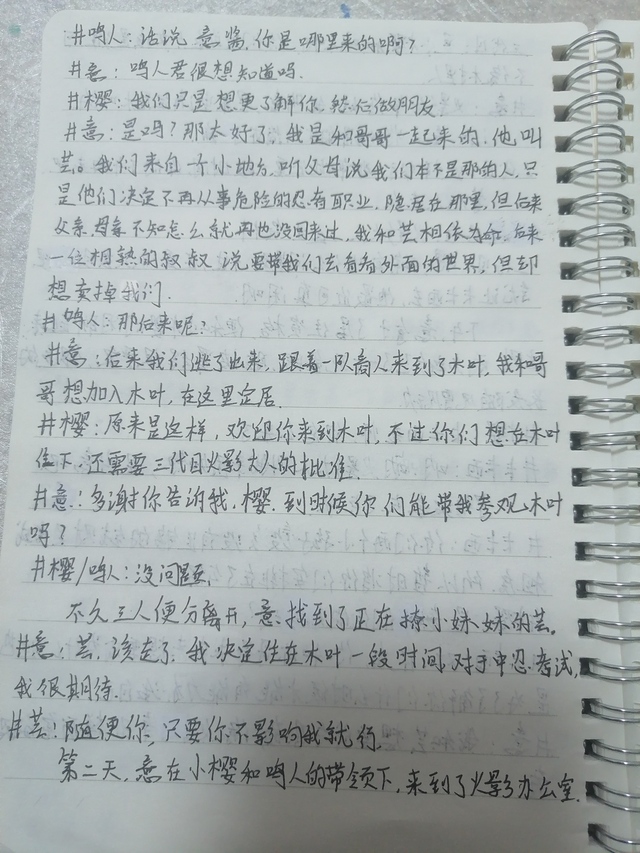 #鸣人：话说 意酱，你是哪里来的啊？
#意：鸣人君很想知道吗．
#樱：我们只是想更了解你，然后做朋友
#意：是吗？那太好了，我是和哥哥一起来的，他叫
芸。我们来自一个小地方，听父母说我们本不是那的人，只
是他们决定不再从事危险的忍者职业，隐居在那里，但后来
父亲母亲不知怎么就再也没回来过，我和芸相依为命，后来
一位相熟的叔叔说要带我们去看看外面的世界，但却
想卖掉我们．
#鸣人：那后来呢？
#意：后来我们逃了出来，跟着一队商人来到了木叶，我和哥
哥想加入木叶，在这里定居．
#樱：原来是这样，欢迎你来到木叶，不过你们想在木叶
住下，还需要三代目火影大人的批准．
#意：多谢你告诉我，樱，到时候你们能带我参观木叶
吗？
#樱/鸣人：没问题．
不久三人便分离开，意找到了正在撩小妹妹的芸。
#意：芸，该走了，我决定住在木叶一段时间，对于中忍考试，
我很期待．
#芸：随便你，只要你不影响我就行．
第二天，意在小樱和鸣人的带领下，来到了火影办公室．